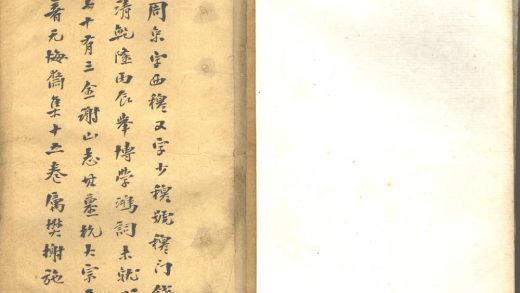 周京字西穆又字少穆號穆门錢
清乾隆丙辰舉博學鴻詞未就
十有三全謝山志其墓杭大宗
著无悔齋集十五卷厲樊榭施